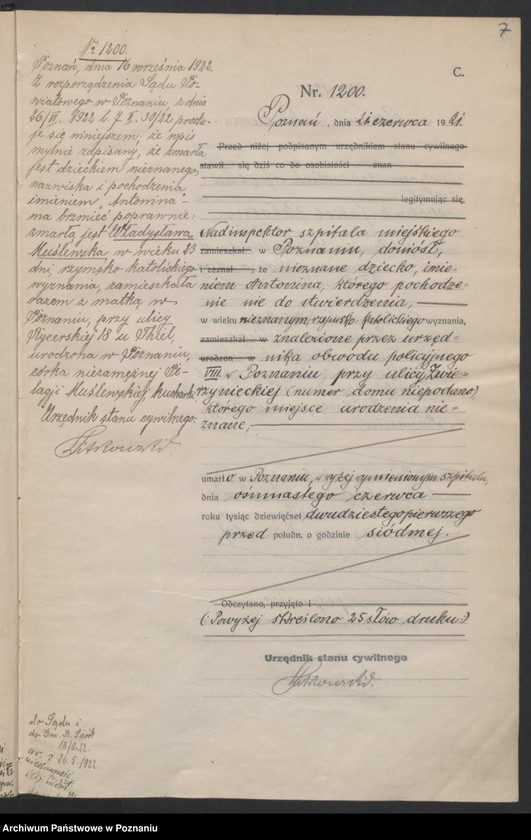 7
C.
Nr. 1200.
Poznań, dnia 21 czerwca 1921.
Przed niżej podpisanym urzędnikiem stanu cywilnego
stawił się dziś co do osobistości znan
legitymując się,
Nadinspektor szpitala miejskiego
zamieszkał w Poznaniu, doniósł,
i zeznał, że nieznane dziecko, imie-
niem Antonina, którego pochodze-
nie nie do stwierdzenia,
w wieku nieznanym rzymsko katolickiego wyznania,
zamieszkał w znalezione przez urzęd-
urodzon w nika obwodu policyjnego
VIII. w Poznaniu przy ulicy Zwie-
rzynieckiej (numer domu niepodano)
którego miejsce urodzenia nie-
znane,
umarło w Poznaniu, wyżej wymienionym szpitalu,
dnia ośmnastego czerwca
roku tysiąc dziewięćset dwudziestegopierwszego
przed połudn. o godzinie siódmej.
Odczytano, przyjęto i
(Powyżej skreślono 25 słów druku.)
Urzędnik stanu cywilnego
Nr. 1200.
Poznań, dnia 16 września 1922.
Z rozporządzenia Sądu Po-
wiatowego w Poznaniu, z dnia
26/VI. 1922 l. 7. X. 30/22 prostu-
je się niniejszem, że wpis
mylnie zapisany, że zmarła
jest dzieckiem nieznanego
nazwiska i pochodzenia
imieniem "Antonina" -
ma brzmieć poprawnie:
zmarłą jest Władysława
Muślewska w wieku 23
dni, rzymsko katolickiego
wyznania, zamieszkała
razem z matką w
Poznaniu, przy ulicy
Rycerskiej 18 u Thiel,
urodzona w Poznaniu,
córka niezamężnej Pe-
lagji Muślewskiej kucharki.
Urzędnik stanu cywilnego:
do Sądu i
26.5.1922
Archiwum Państwowe w Poznaniu